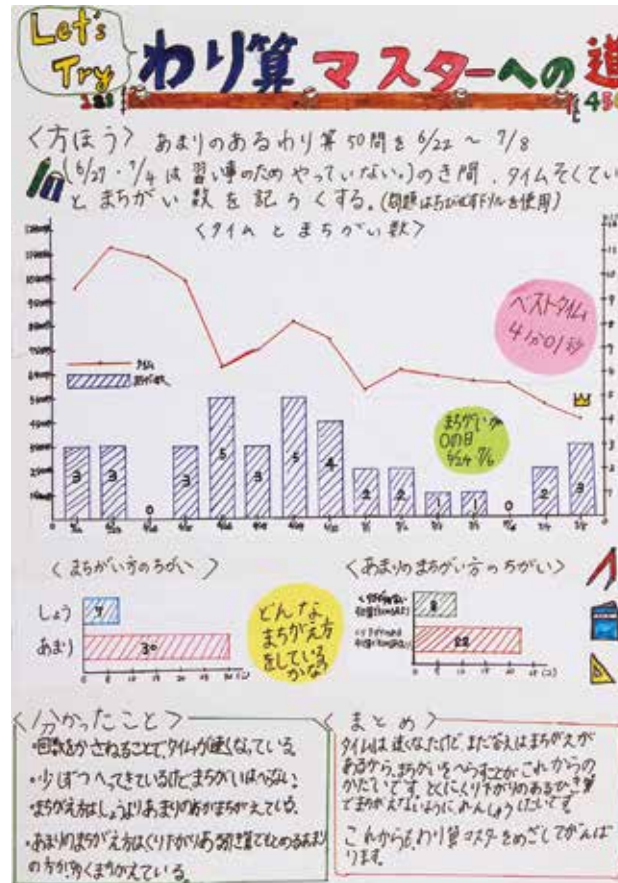 Let's Try
わり算マスターへの道
123
456
〈方ほう〉 あまりのあるわり算50問を6/22〜7/8
(6/27・7/4は習い事のためやっていない。)のき間、タイムそくてい
とまちがい数を記ろくする。
〈タイムとまちがい数〉
タイム
まちがい数
ベストタイム
4分01秒
まちがいが
0の日
6/24 7/6
3 3 0 3 5 3 5 4 2 2 1 1 0 2 3
〈まちがい方のちがい〉
しょう 7
あまり 30
0 5 10 15 20 25 30
どんな
まちがえ方
をしている
かな?
〈あまりのまちがい方のちがい〉
8
22
0 5 10 15 20 25
〈分かったこと〉
・回数をかさねることで、タイムが速くなっている。
・少しずつへってきているけどまちがいはへらない。
・まちがえ方はしょうよりあまりの方がまちがえている。
・あまりのまちがえ方はくり下がりのあるひき算でもとめるあまり
の方が多くまちがえている。
〈まとめ〉
タイムは速くなったけど、まだ答えはまちがえが
あるから、まちがいをへらすことがこれからの
かだいです。とくにくり下がりのあるひき算
でまちがえないようにれんしゅうしたいです。
これからもわり算マスターをめざしてがんば
ります。